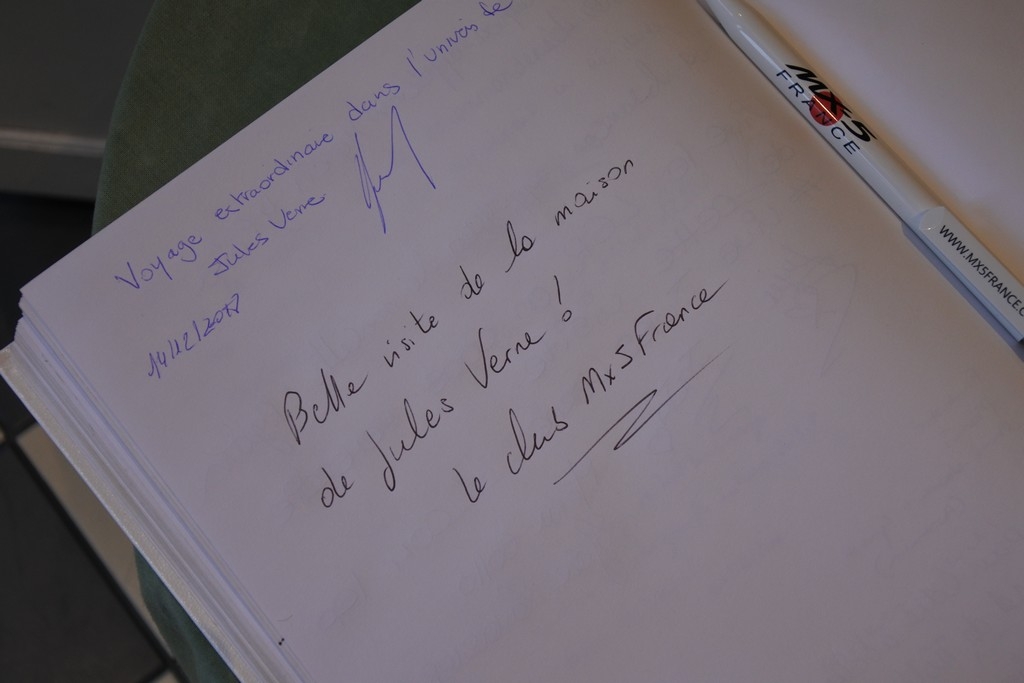 Voyage extraordinaire dans l'univers de
Jules Verne
14/12/2017
Belle visite de la maison
de Jules Verne !
le club Mx5France
MX-5
FRANCE
WWW.MX5FRANCE.C